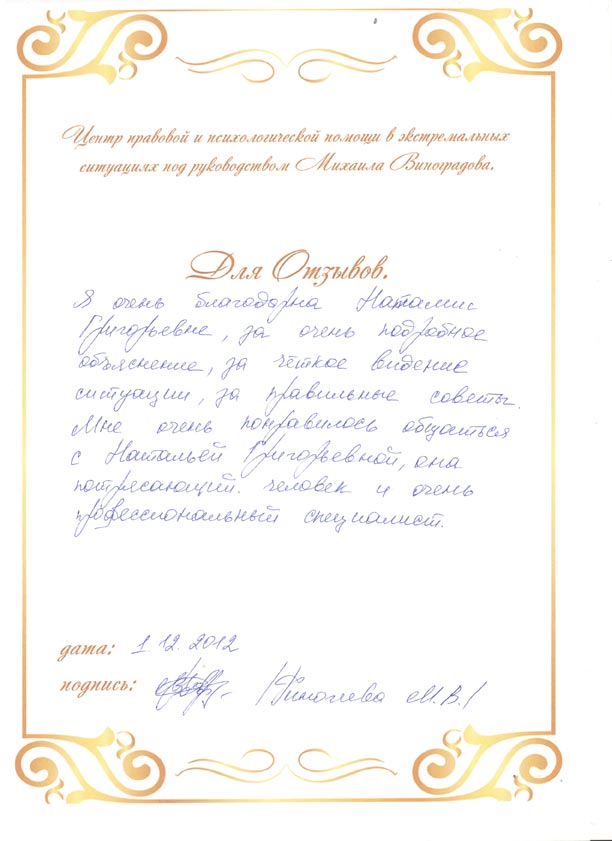 Центр правовой и психологической помощи в экстремальных
ситуациях под руководством Михаила Виноградова.
Для Отзывов.
Я очень благодарна Наталии
Григорьевне, за очень подробное
объяснение, за чёткое видение
ситуации, за правильные советы.
Мне очень понравилось общаться
с Натальей Григорьевной, она
потрясающий. человек и очень
профессиональный специалист.
дата: 1.12.2012
подпись: / М.В./